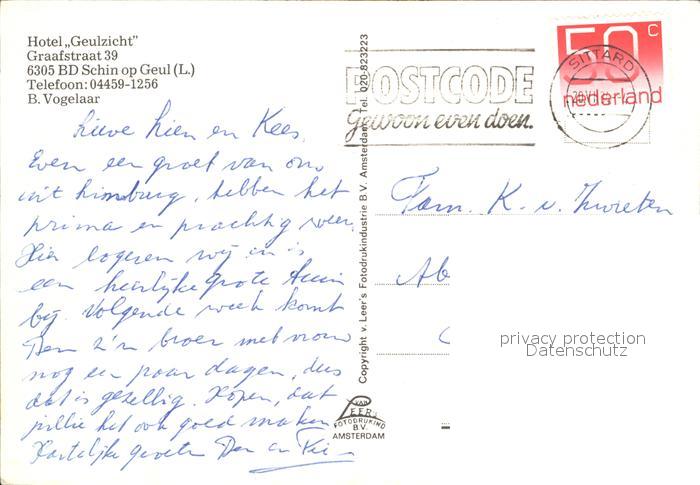 Hotel „Geulzicht"
Graafstraat 39
6305 BD Schin op Geul (L.)
Telefoon: 04459-1256
B. Vogelaar
Lieve Lien en Kees,
Even een groet van ons
uit Limburg, hebben het
prima en prachtig weer.
Hier logeren wij in is
een heerlijke grote tuin
bij. Volgende week komt
Den z'n broer met vrouw
nog een paar dagen, dus
dat is gezellig. Hopen, dat
jullie het ook goed maken
Hartelijke groeten Den en
Copyright v. Leer's Fotodrukindustrie B.V. Amsterdam Tel. 020-823223
POSTCODE
gewoon even doen.
50 c
nederland
SITTARD
Fam. K. v. Zwieten
Ab
privacy protection
Datenschutz
VAN
LEER'S
FOTODRUKIND
B.V.
AMSTERDAM